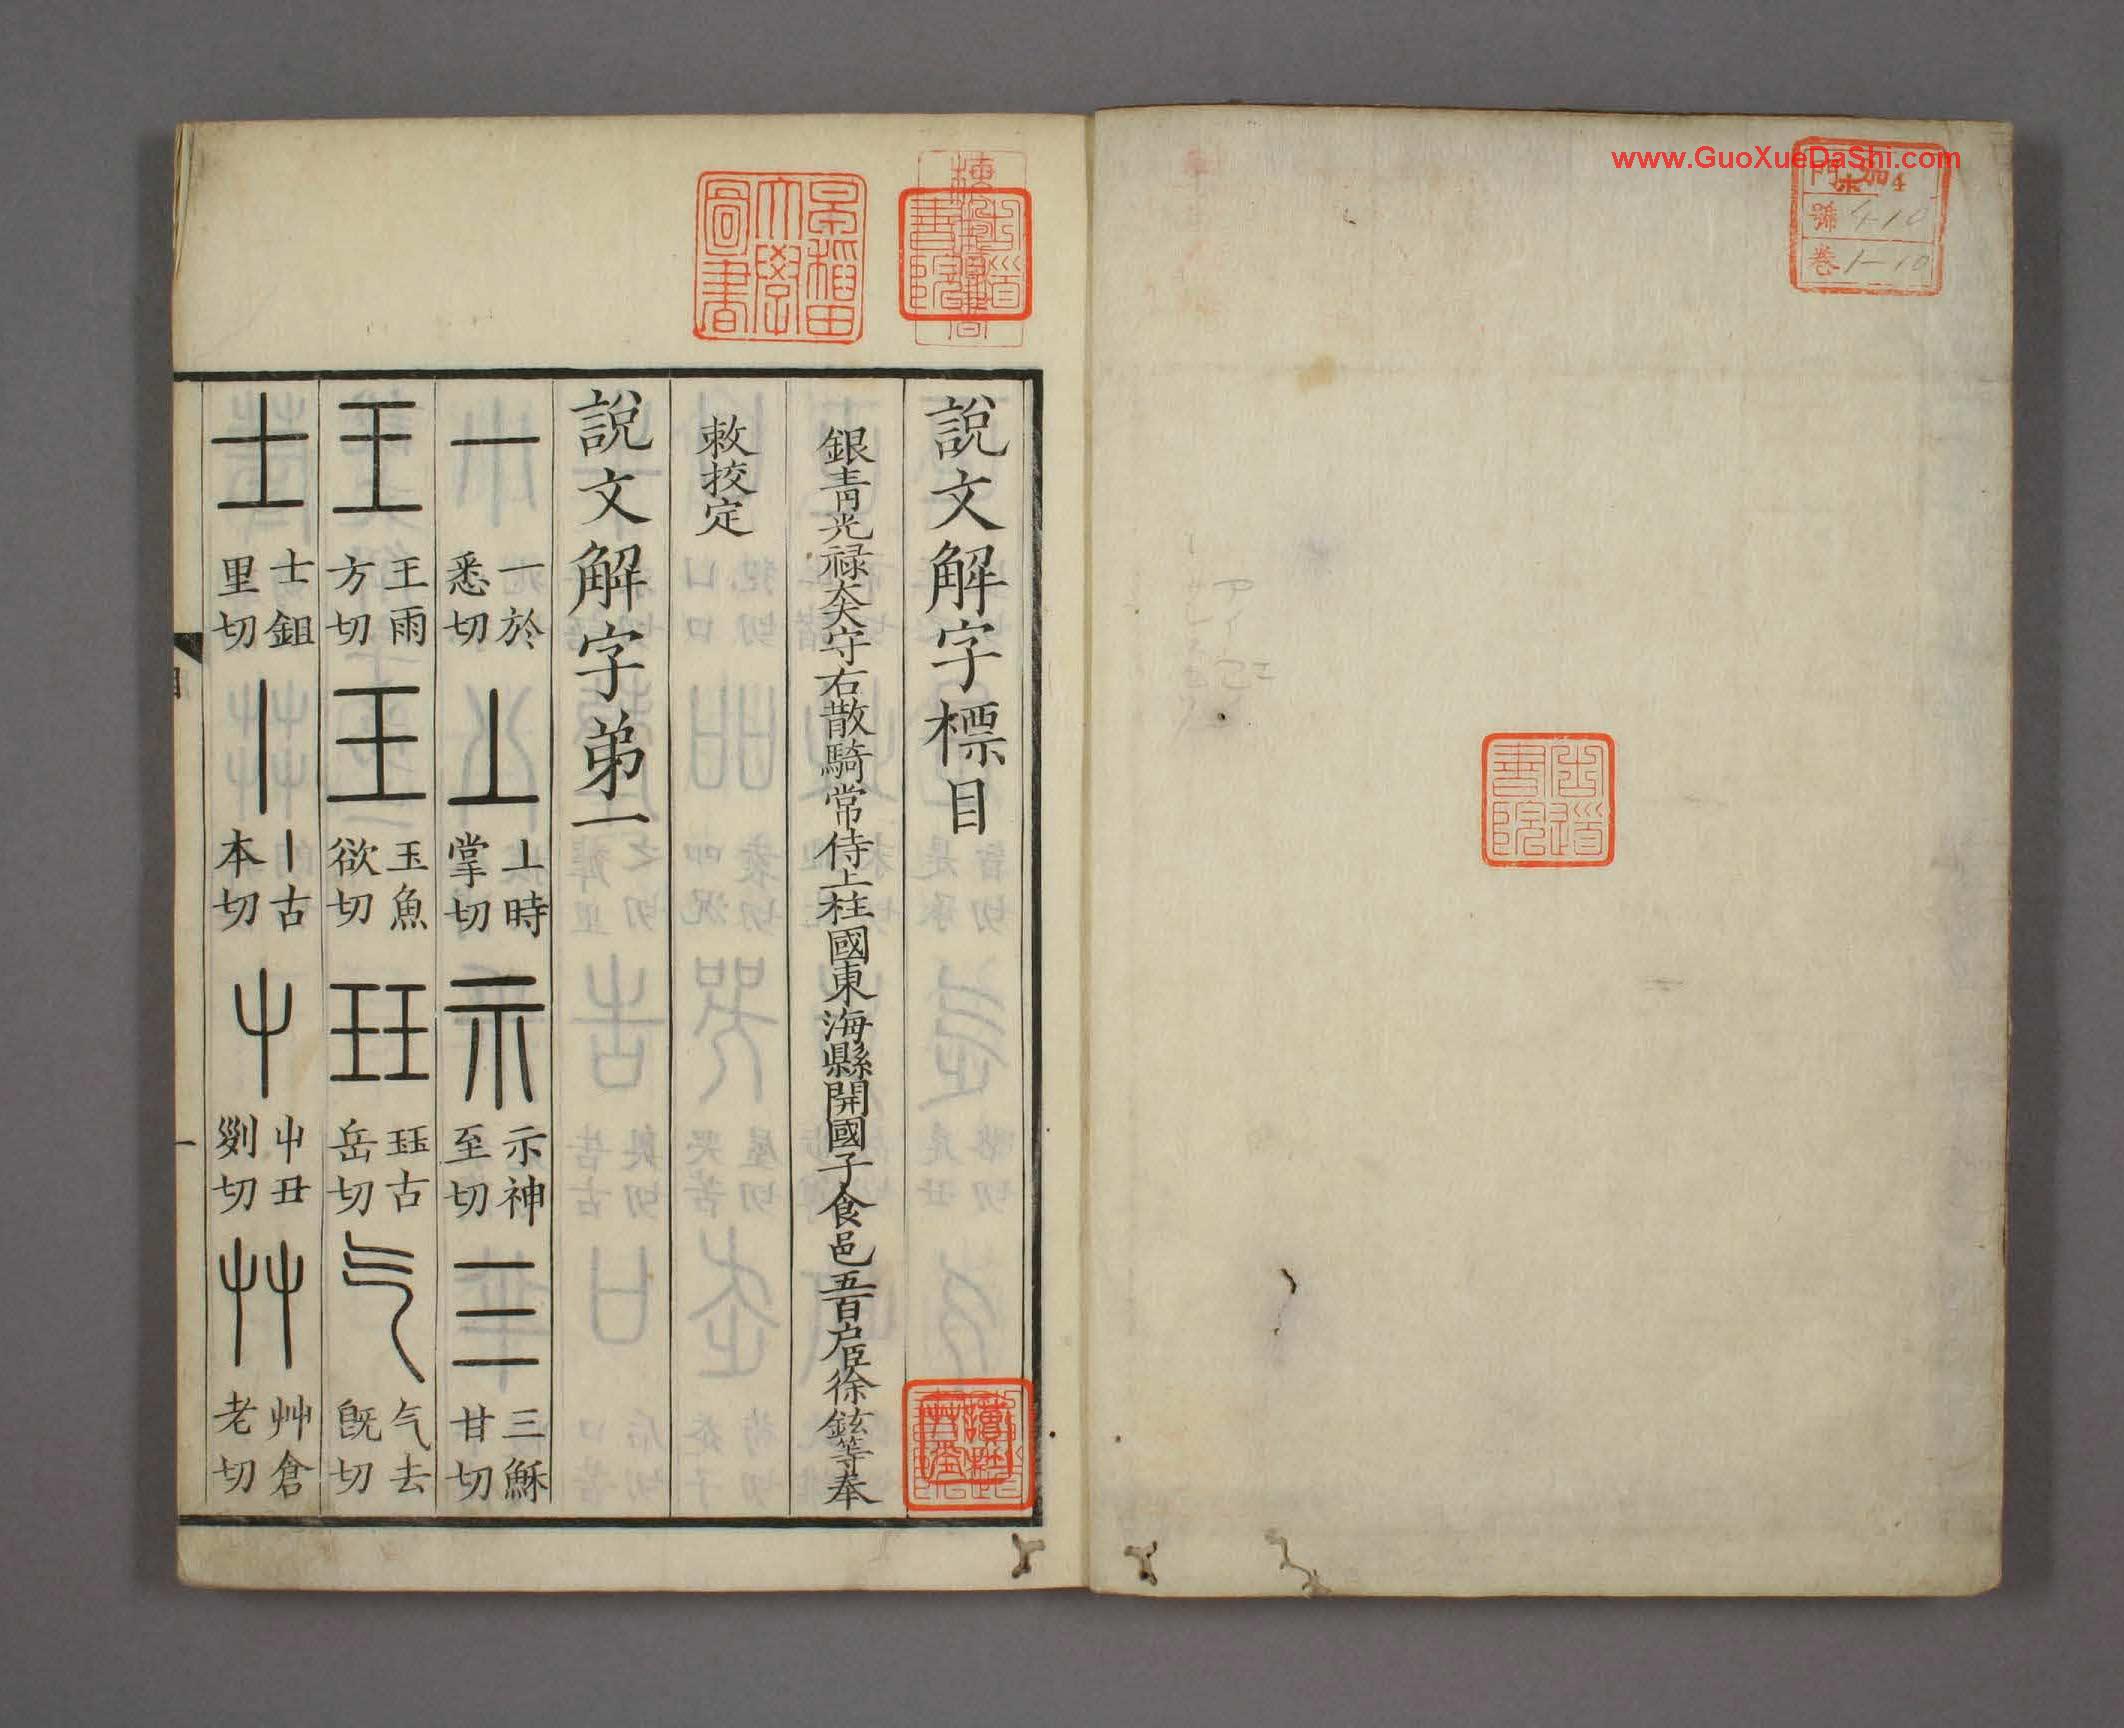 www.GuoXueDaShi.com
門
號 4-10
巻 1-10
說文解字標目
銀青光禄大夫守右散騎常侍上柱國東海縣開國子食邑五百户臣徐鉉等奉
敕挍定
說文解字弟一
一 一於悉切 丄 丄時掌切 示 示神至切 三 三穌甘切
王 王雨方切 王 玉魚欲切 玨 玨古岳切 气 气去旣切
士 士鉏里切 丨 丨古本切 屮 屮丑列切 艸 艸倉老切
早稻田大學圖書